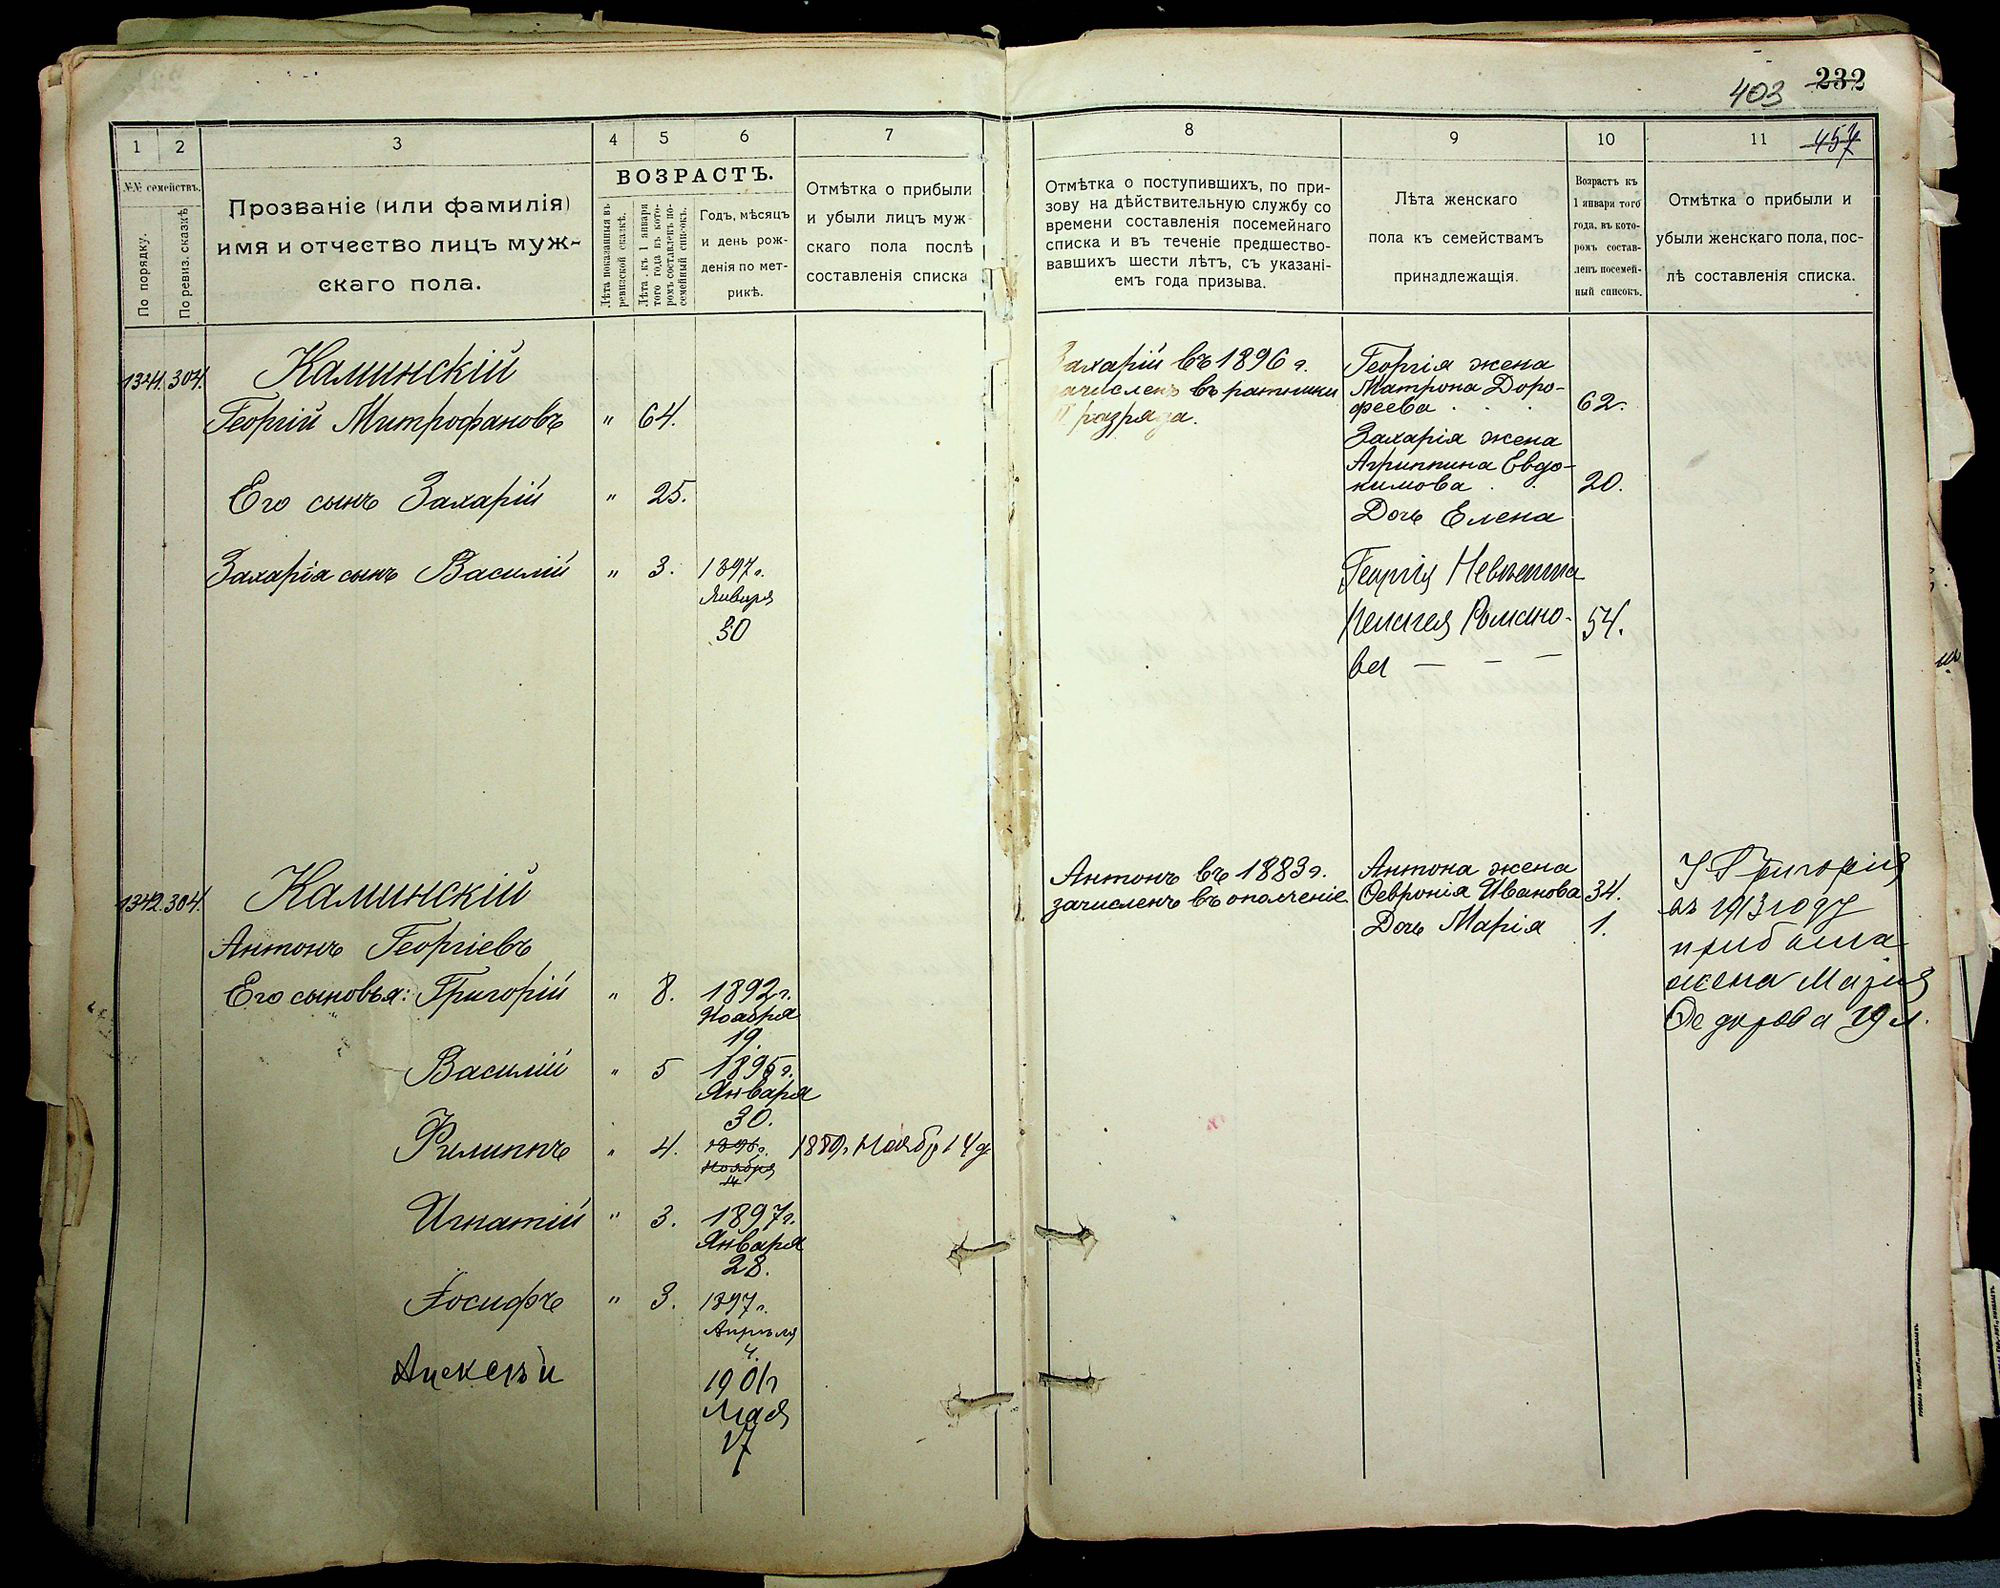 403 232
457
1 2 3 4 5 6 7
№№ семействъ.
По порядку.
По ревиз. сказкѣ
Прозваніе (или фамилія)
имя и отчество лицъ муж-
скаго пола.
ВОЗРАСТЪ.
Лѣта показанныя въ
ревизской сказкѣ.
Лѣта къ 1 января
того года въ кото-
ромъ составленъ по-
семейный списокъ.
Годъ, мѣсяцъ
и день рож-
денія по мет-
рикѣ.
Отмѣтка о прибыли
и убыли лицъ муж
скаго пола послѣ
составленія списка
1341. 304. Калинскій
Георгій Митрофановъ " 64.
Его сынъ Захарій " 25.
Захарія сынъ Василій " 3. 1897 г.
Января
30
1342. 304. Калинскій
Антонъ Георгіевъ
Его сыновья: Григорій " 8. 1892 г.
Ноября
19.
Василій " 5 1895 г.
Января
30.
Филиппъ " 4. 1895 г. 1889 г. Ноябр 14 д
Ноября
14
Игнатій " 3. 1897 г.
Января
28.
Іосифъ " 3. 1897 г.
Апрѣля
4.
Алексѣй 1901 г
Мая
17
8 9 10 11
Отмѣтка о поступившихъ, по при-
зову на дѣйствительную службу со
времени составленія посемейнаго
списка и въ теченіе предшество-
вавшихъ шести лѣтъ, съ указані-
емъ года призыва.
Лѣта женскаго
пола къ семействамъ
принадлежащія.
Возрастъ къ
1 января того
года, въ кото-
ромъ состав-
ленъ посемей-
ный списокъ.
Отмѣтка о прибыли и
убыли женскаго пола, пос-
лѣ составленія списка.
Захарій въ 1896 г.
зачисленъ въ ратники
II разряда.
Георгія жена
Матрона Доро-
феева . . . 62.
Захарія жена
Агриппина Евдо-
кимова . . 20.
Дочь Елена
Георгія Невѣстка
Пелагея Романо- 54.
ва — — —
Антонъ въ 1883 г.
зачисленъ въ ополченіе
Антона жена
Ѳевронія Иванова 34.
Дочь Марія 1.
У Григорія
въ 1913 году
прибыла
жена Марія
Ѳедорова 19 л.